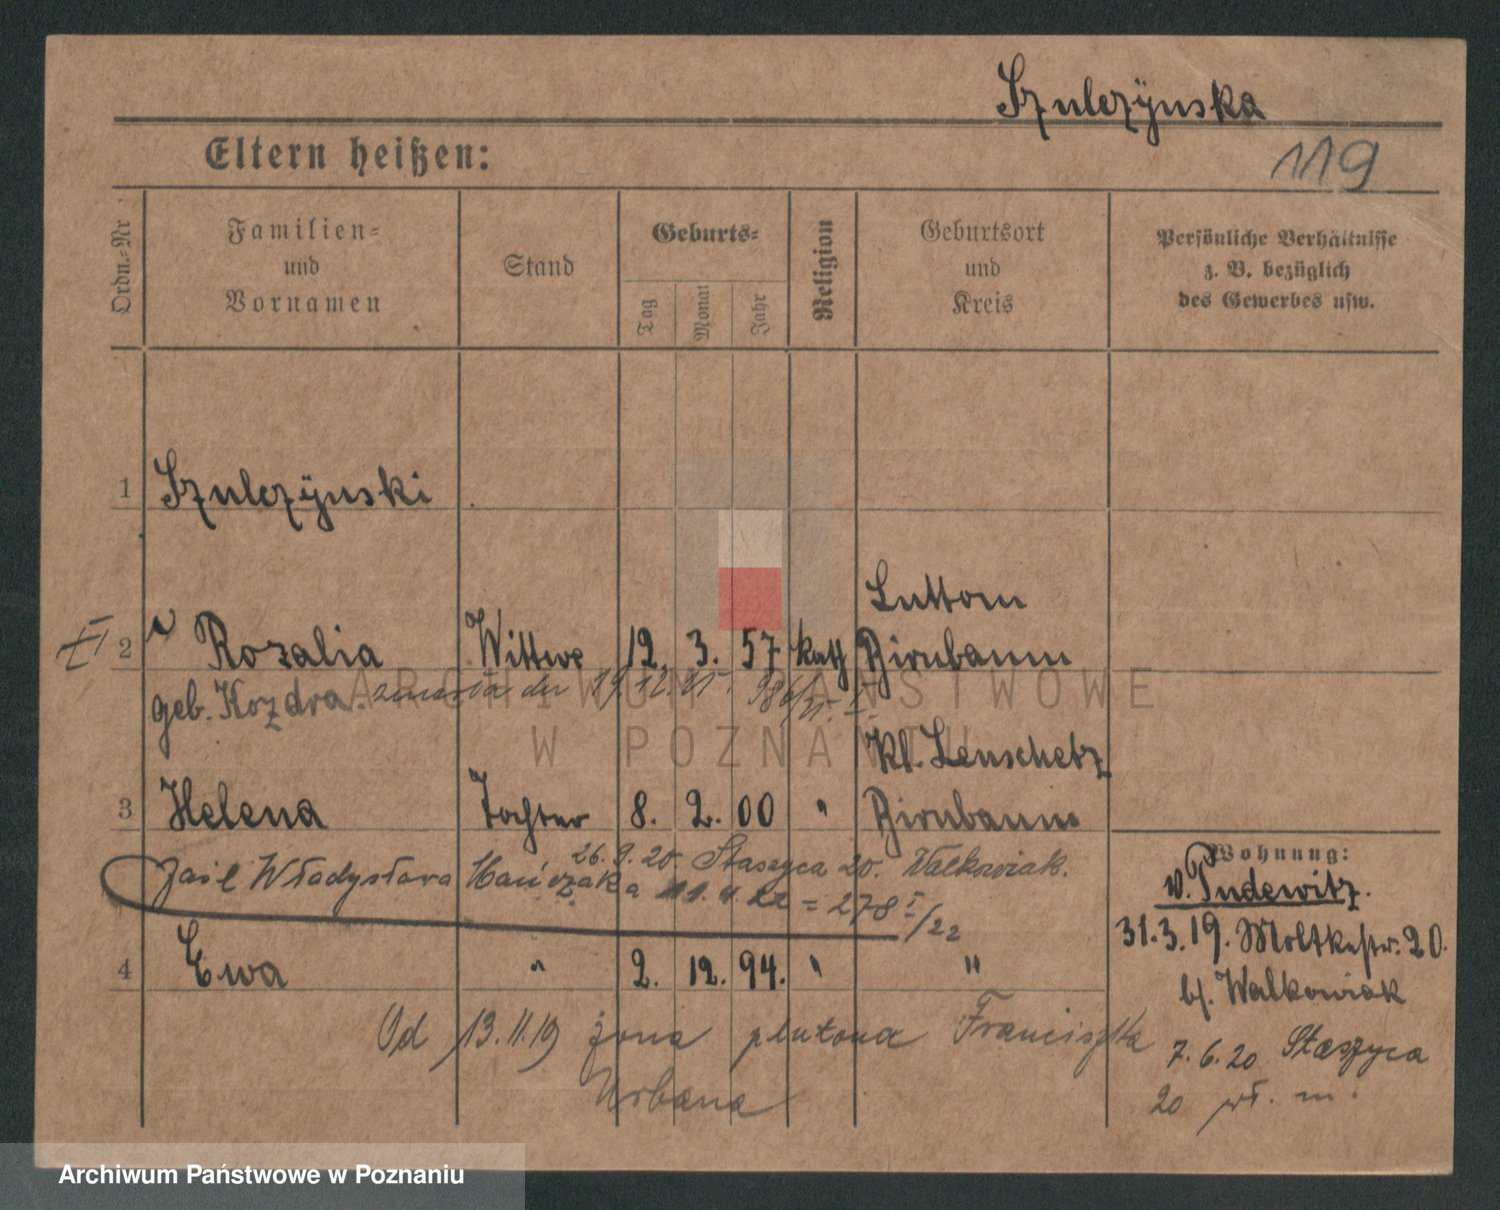 Szulczÿnska
Eltern heißen:
119
Ordn.-Nr
Familien-
und
Vornamen
Stand
Geburts-
Tag
Monat
Jahr
Religion
Geburtsort
und
Kreis
Persönliche Verhältnisse
z. B. bezüglich
des Gewerbes usw.
1 Szulczÿnski
Luttom
2 Rozalia Wittwe 12. 3. 57 kath Birnbaum
geb. Kozdra. zmarła 19.12.
Kl. Lenschetz
3 Helena Tochter 8. 2. 00 " Birnbaum
26.9.20. Staszyca 20. Walkowiak.
Władysława Hańczaka 11.4.22 = 278 I/22
4 Ewa " 2. 12. 94. " "
Od 13.11.19 żona plutona Franciszka
Urbana
Wohnung:
v. Pudewitz.
31.3.19. Moltkestr. 20.
b/. Walkowiak
7.6.20 Staszyca
20 wł. m.
ARCHIWUM PAŃSTWOWE
W POZNANIU
Archiwum Państwowe w Poznaniu